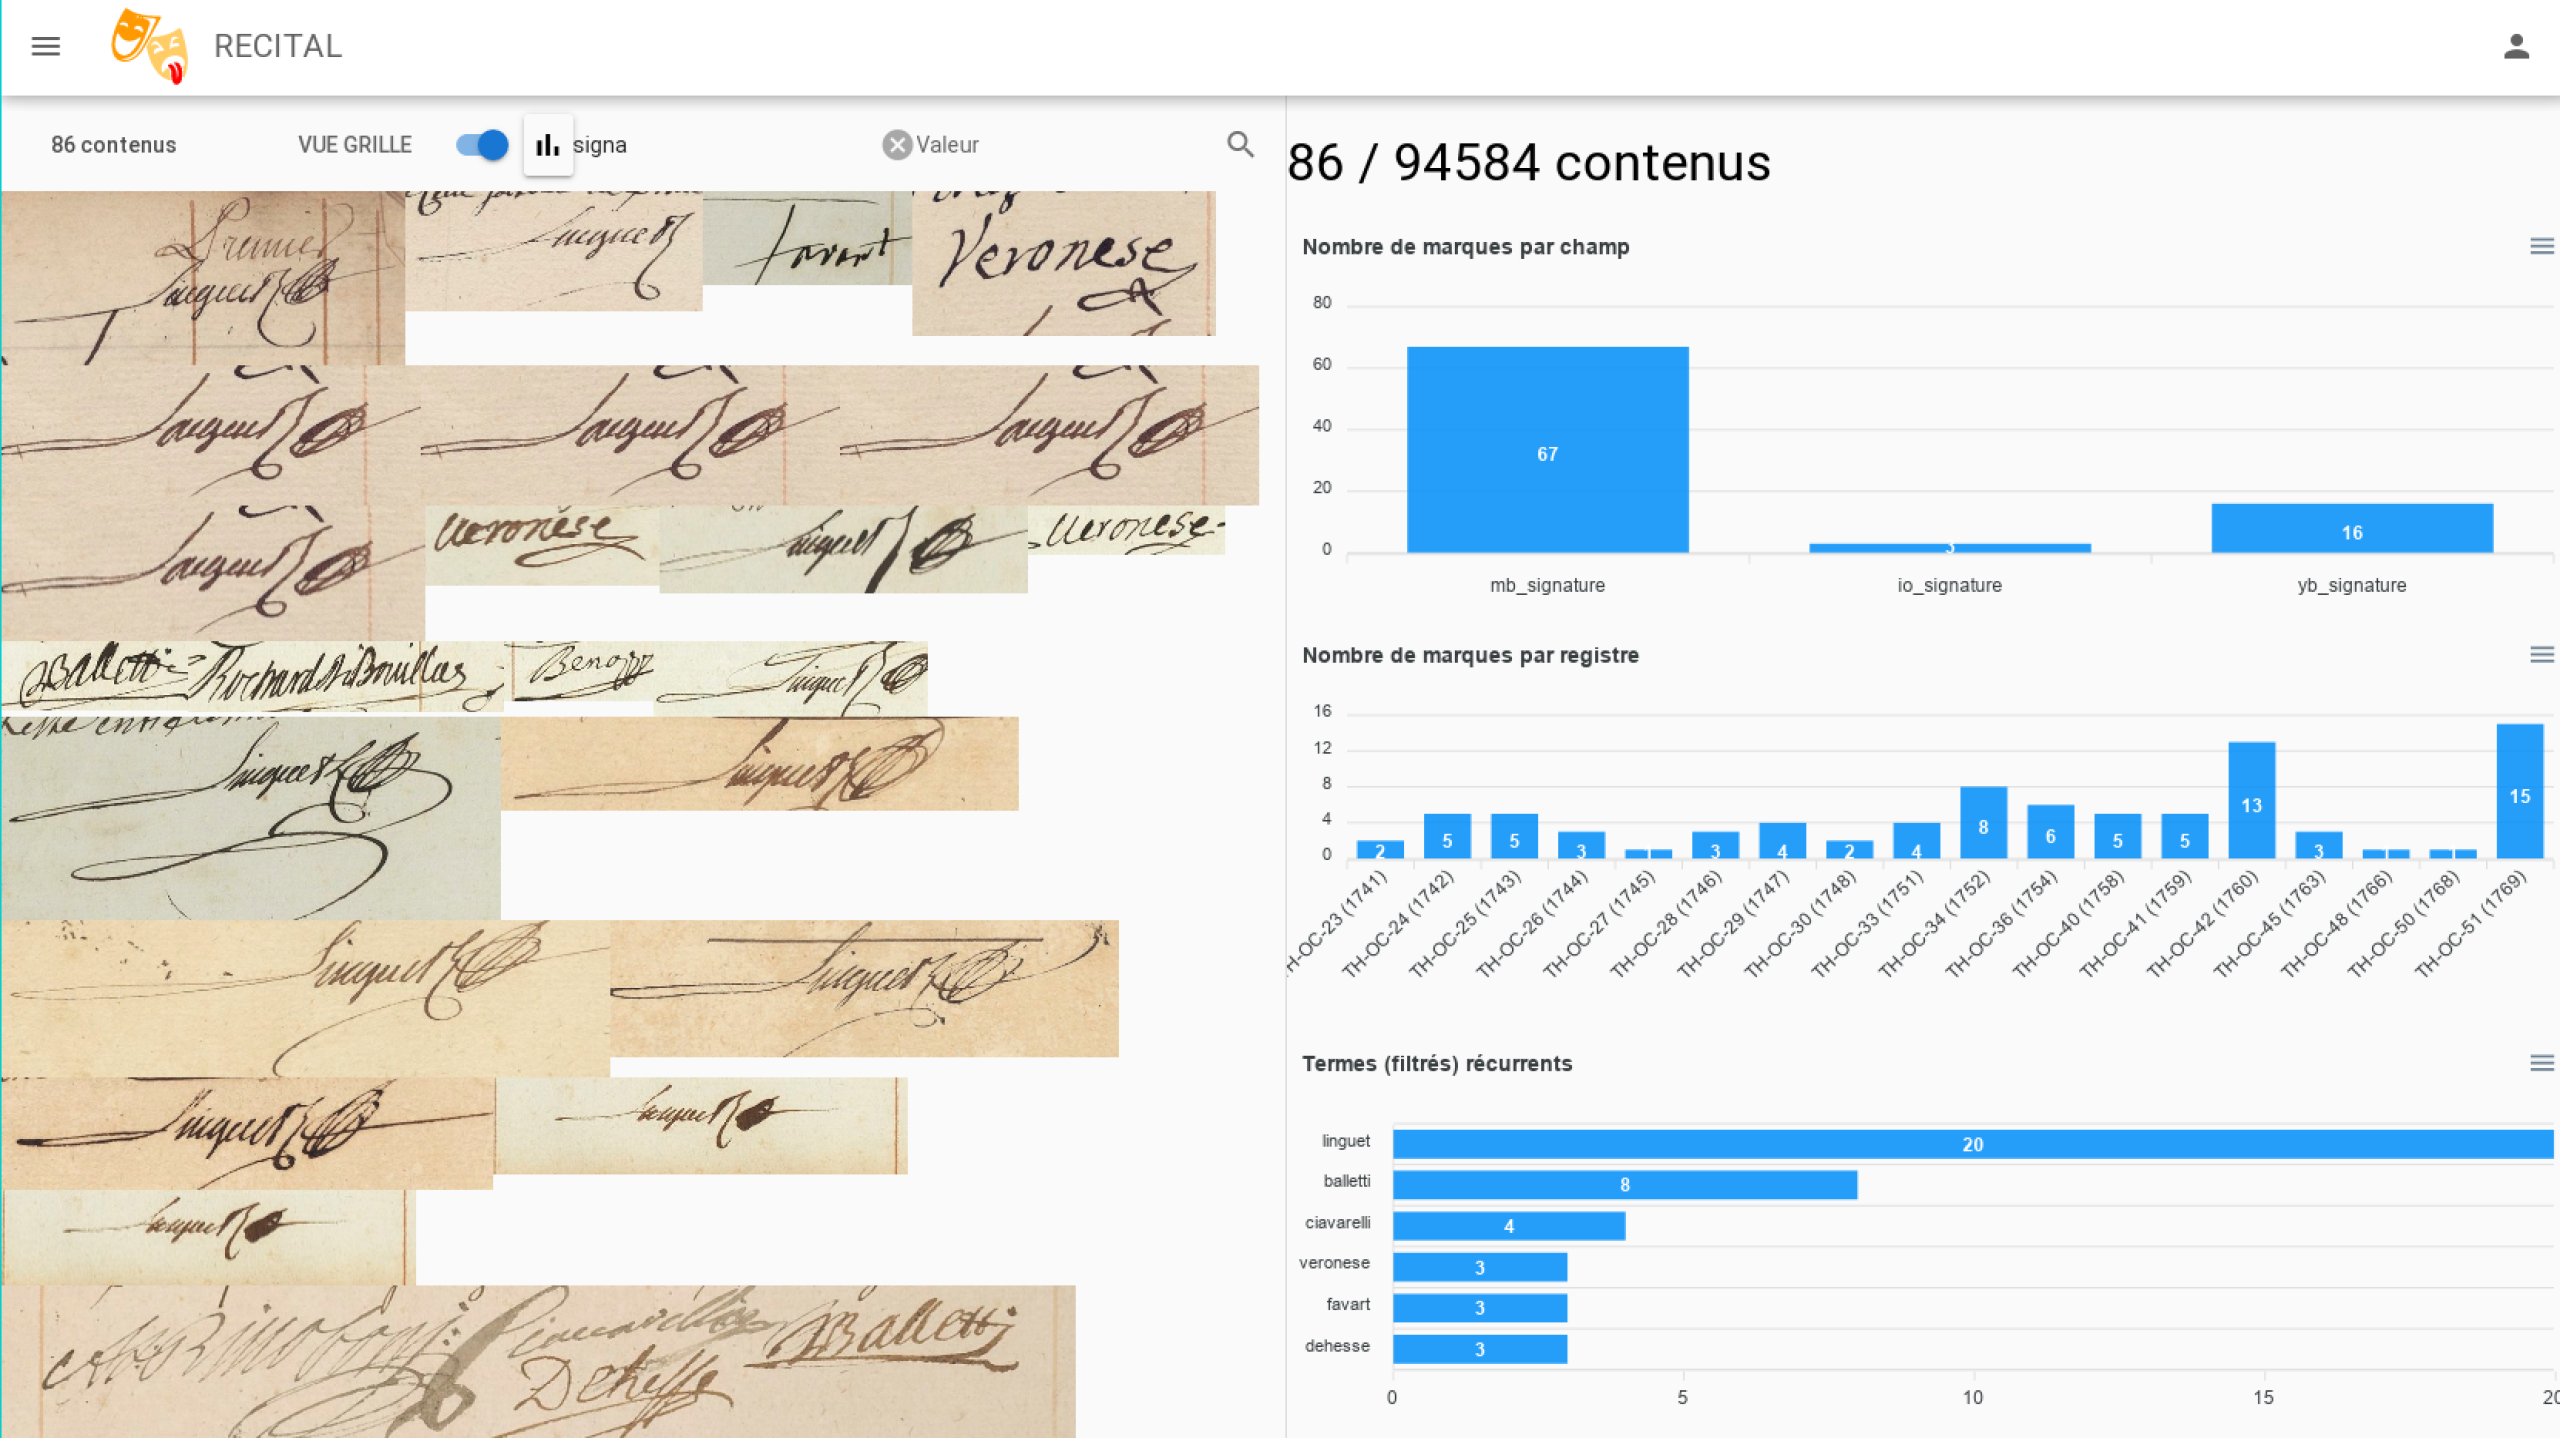 RECITAL
86 contenus VUE GRILLE signa Valeur
Premier
Linguet
Linguet
favart
Veronese
Linguet
Linguet
Linguet
Linguet
Veronese
Linguet
Veronese
Balletti
Rochard de Bouillac
Linguet
Linguet
Linguet
Linguet
Linguet
Linguet
Linguet
Linguet
Ciavarelli
Balletti
Dehesse
86 / 94584 contenus
Nombre de marques par champ
80
60
40
20
0
67
3
16
mb_signature
io_signature
yb_signature
Nombre de marques par registre
16
12
8
4
0
2
5
5
3
1
3
4
2
4
8
6
5
5
13
3
1
1
15
TH-OC-23 (1741)
TH-OC-24 (1742)
TH-OC-25 (1743)
TH-OC-26 (1744)
TH-OC-27 (1745)
TH-OC-28 (1746)
TH-OC-29 (1747)
TH-OC-30 (1748)
TH-OC-33 (1751)
TH-OC-34 (1752)
TH-OC-36 (1754)
TH-OC-40 (1758)
TH-OC-41 (1759)
TH-OC-42 (1760)
TH-OC-45 (1763)
TH-OC-48 (1766)
TH-OC-50 (1768)
TH-OC-51 (1769)
Termes (filtrés) récurrents
linguet 20
balletti 8
ciavarelli 4
veronese 3
favart 3
dehesse 3
0 5 10 15 20